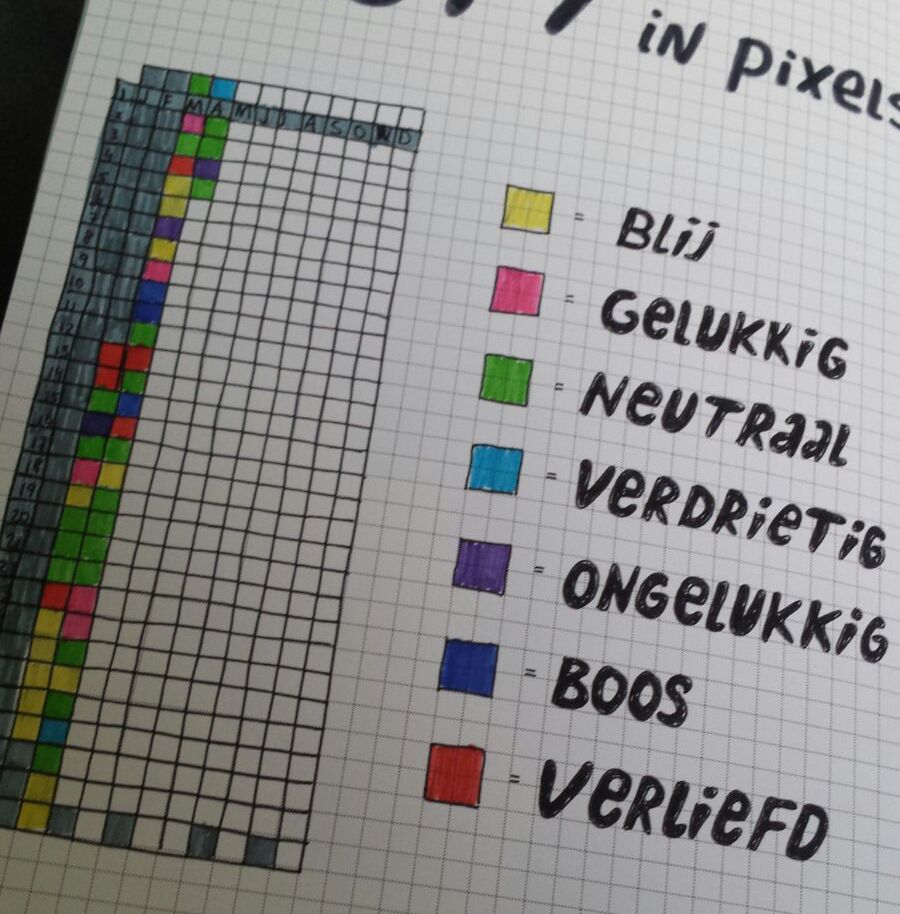 in Pixels
J F M A M J J A S O N D
1
2
3
4
5
6
7
8
9
10
11
12
13
14
15
16
17
18
19
20
21
= BLij
= GELUKKiG
= NEUTRaaL
= VERDRiETiG
= ONGELUKKiG
= BOOS
= VERLiEFD